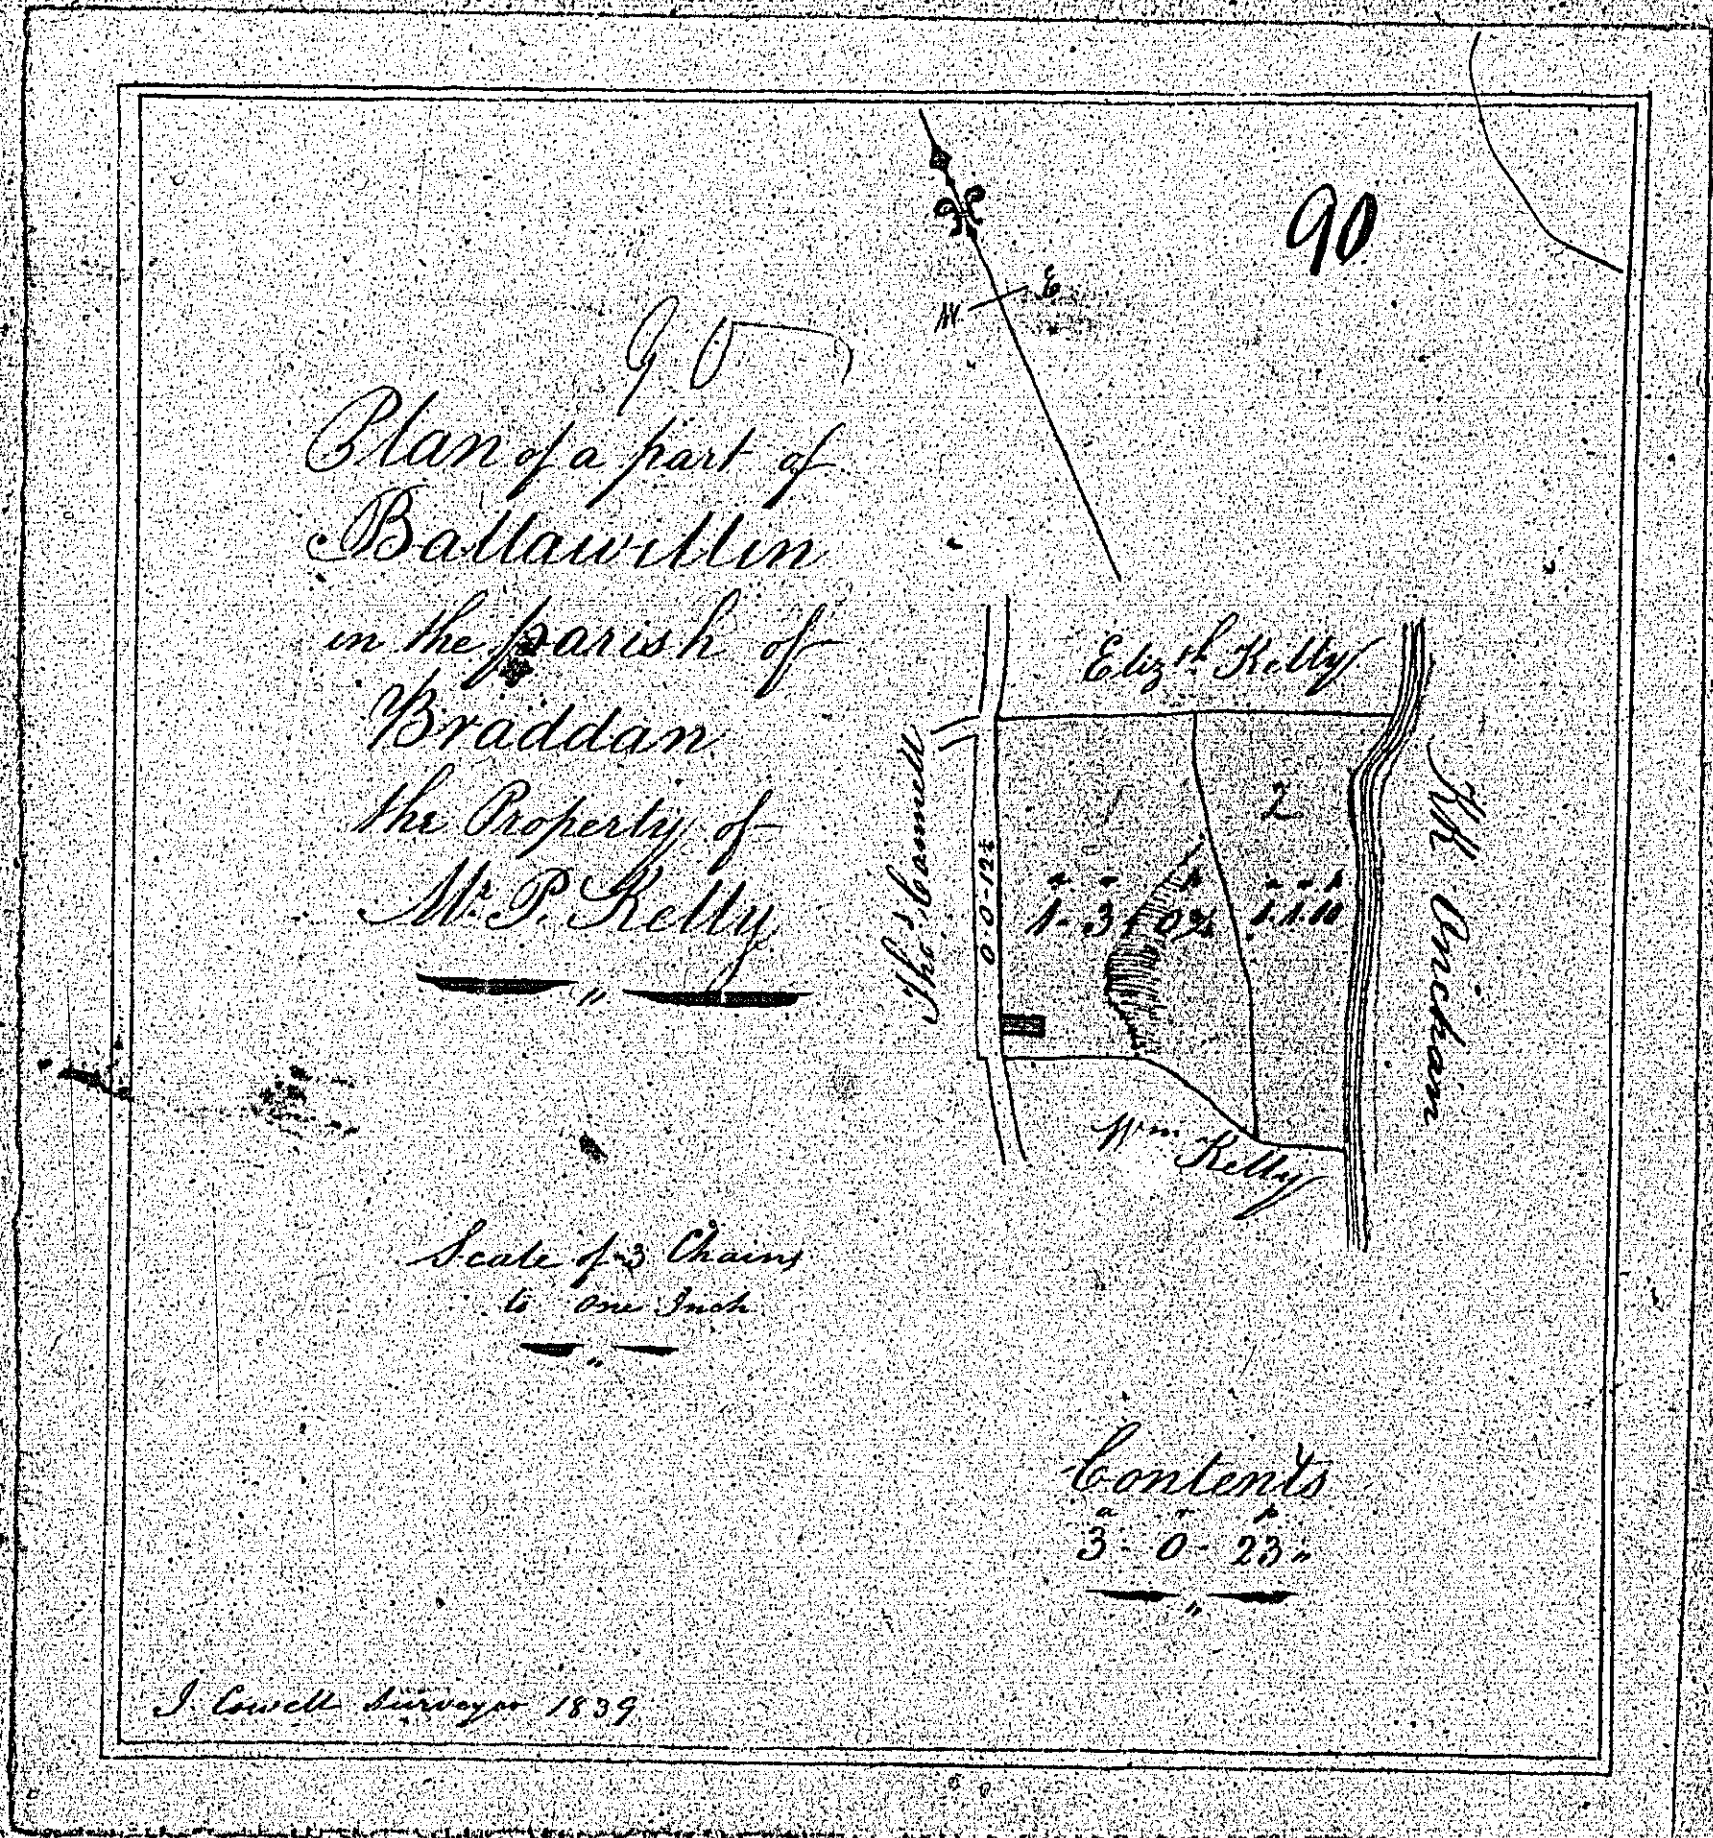 90
W E
90
Plan of a part of
Ballawillin
in the parish of
Braddan
the Property of
Mr. P. Kelly
Elizth Kelly
Thos. Cannell
0-0-12½
1
2
a r p
1-3-0¾
a r p
1.1.10
KK Onichan
Wm Kelly
Scale of 3 Chains
to One Inch
Contents
a r p
3-0-23"
J. Cowell Surveyor 1839